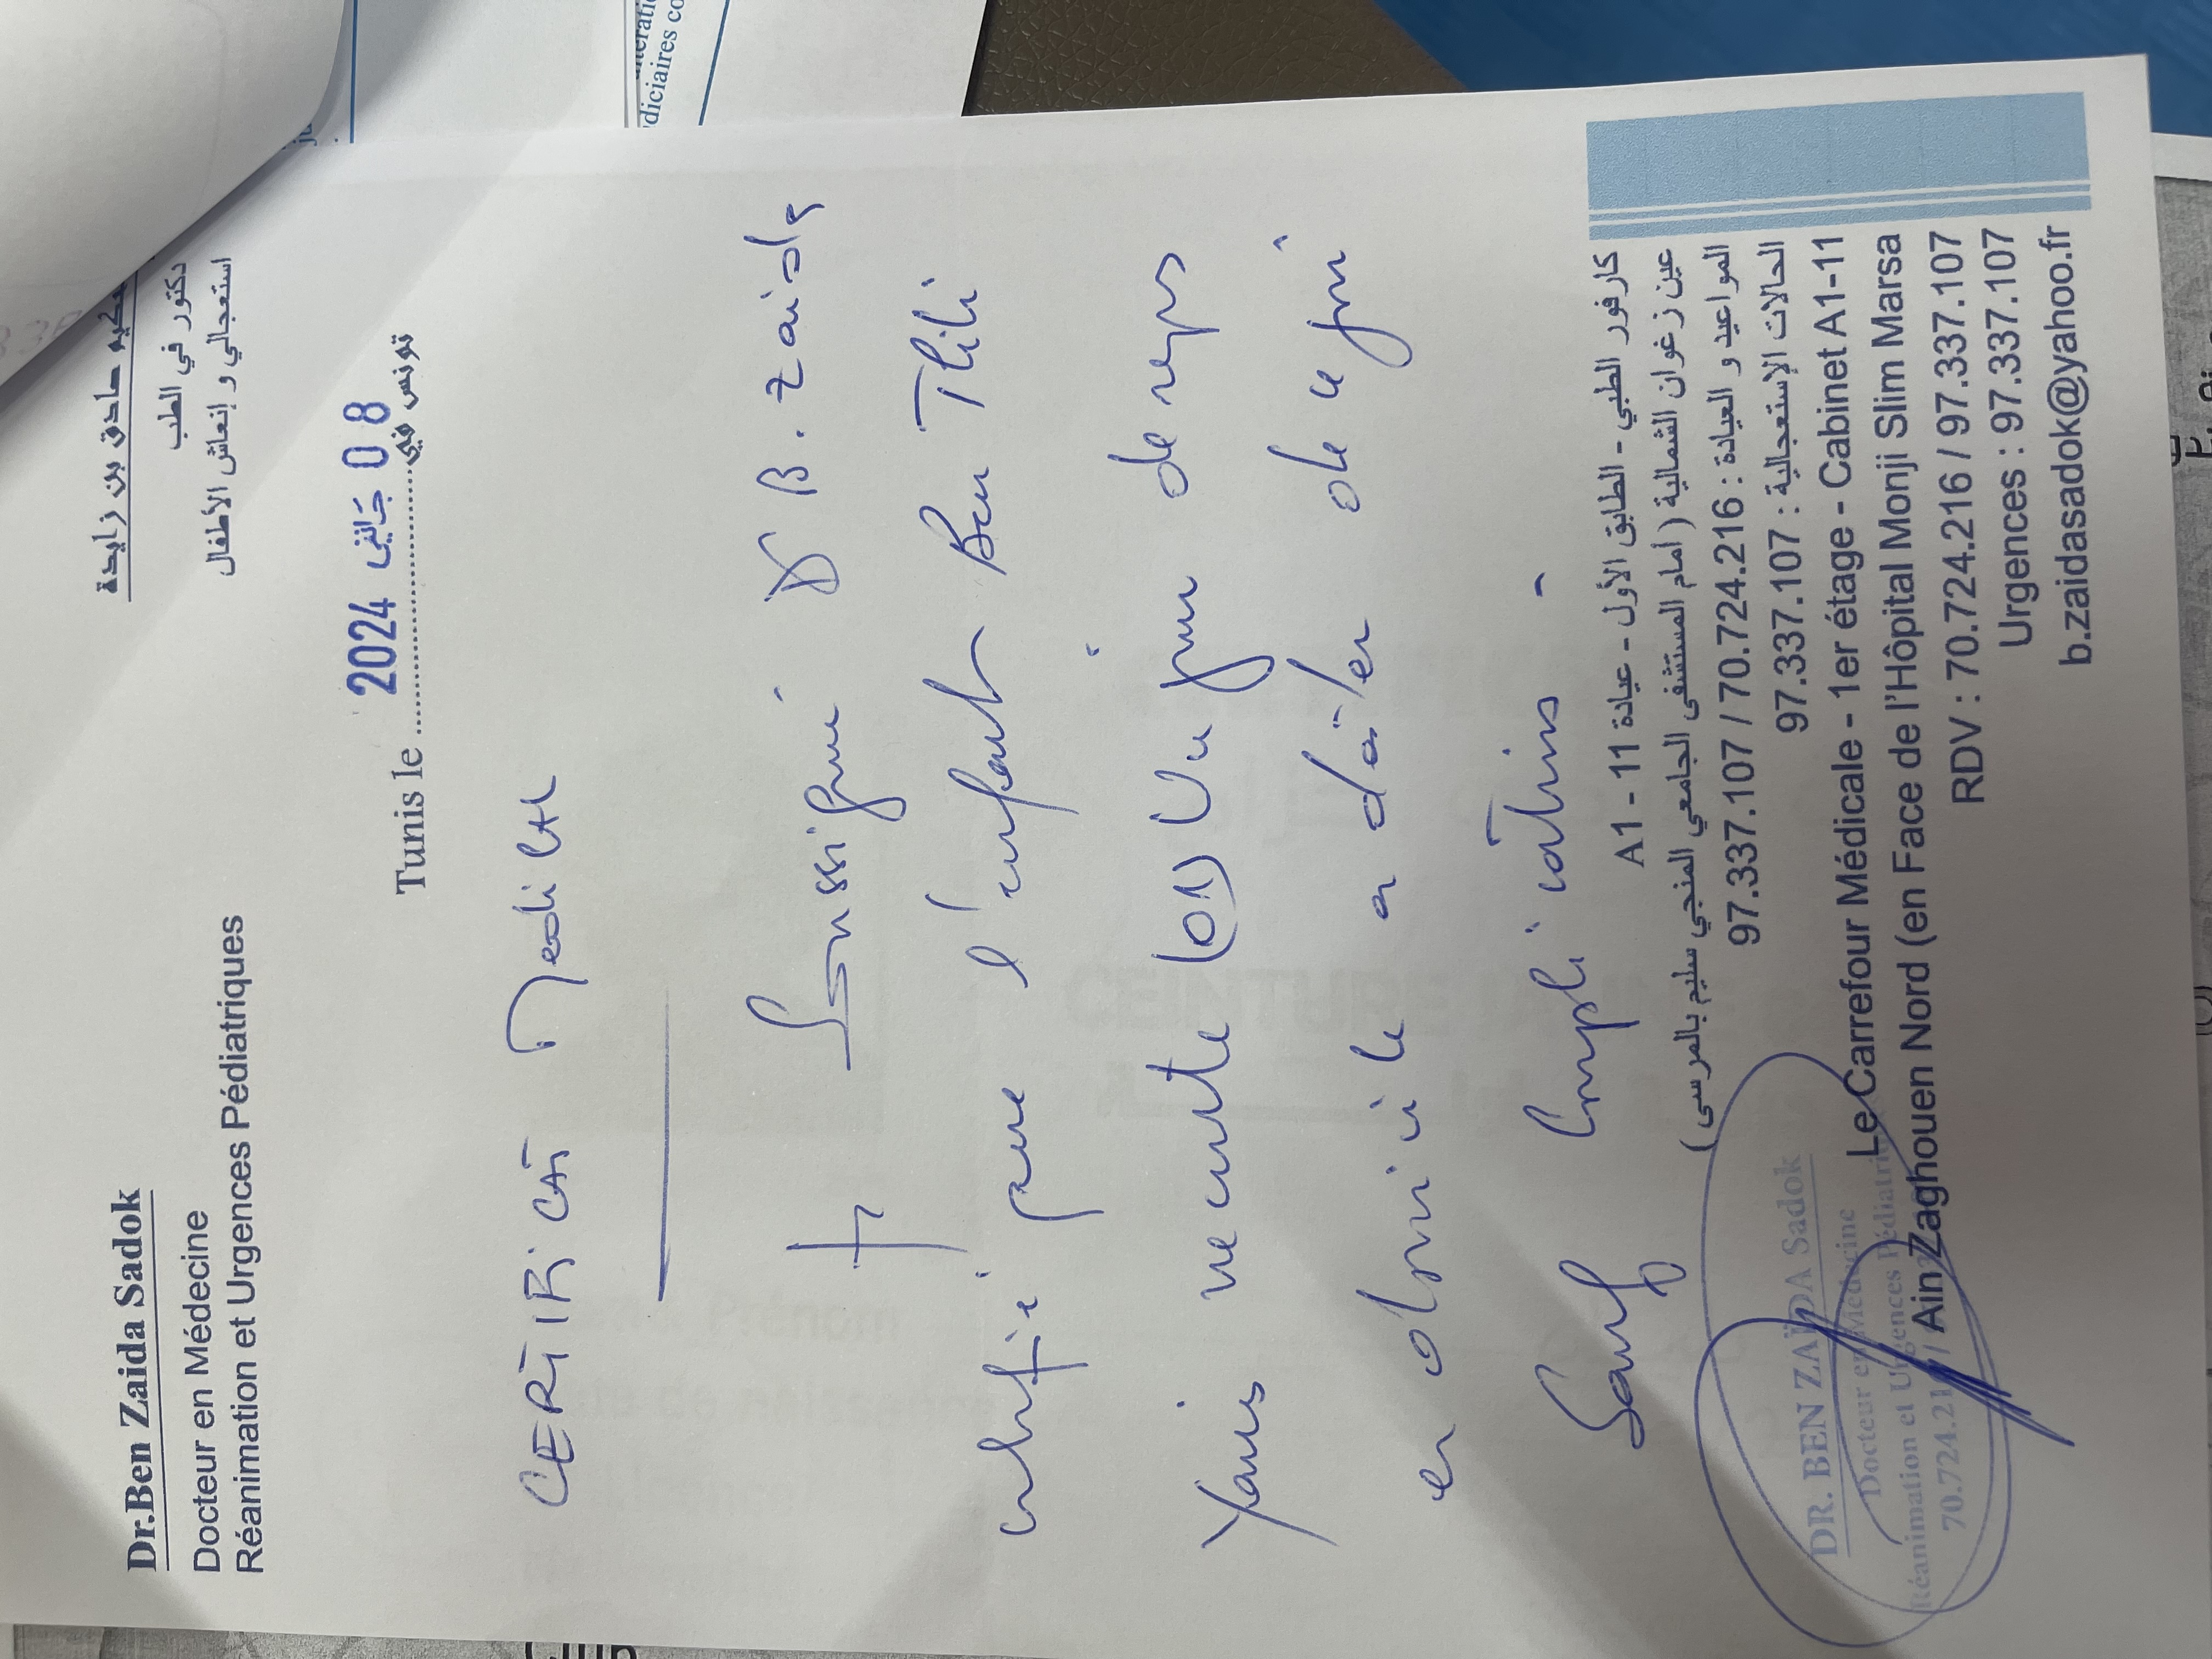 Dr.Ben Zaida Sadok
Docteur en Médecine
Réanimation et Urgences Pédiatriques
صادق بن زايدة
دكتور في الطب
استعجالي و إنعاش الأطفال
2024 جانفي 08
Tunis le ........................ تونس في
CERTIFICAT Medical
Je Soussigné Dr B. Zaida
certifie que l'enfant Ben Tlili
Yanis necessite (01) Un jour de repos
en domicile a dater de ce jour
Sauf Complications -
كارفور الطبي - الطابق الأول - عيادة 11 - A1
عين زغوان الشمالية ( أمام المستشفى الجامعي المنجي سليم بالمرسى)
المواعيد و العيادة : 70.724.216 / 97.337.107
الحالات الإستعجالية : 97.337.107
Le Carrefour Médicale - 1er étage - Cabinet A1-11
Ain Zaghouen Nord (en Face de l'Hôpital Monji Slim Marsa
RDV : 70.724.216 / 97.337.107
Urgences : 97.337.107
b.zaidasadok@yahoo.fr
DR. BEN ZAÏDA Sadok
Docteur en Médecine
Réanimation et Urgences Pédiatri
70.724.21
diciaires co